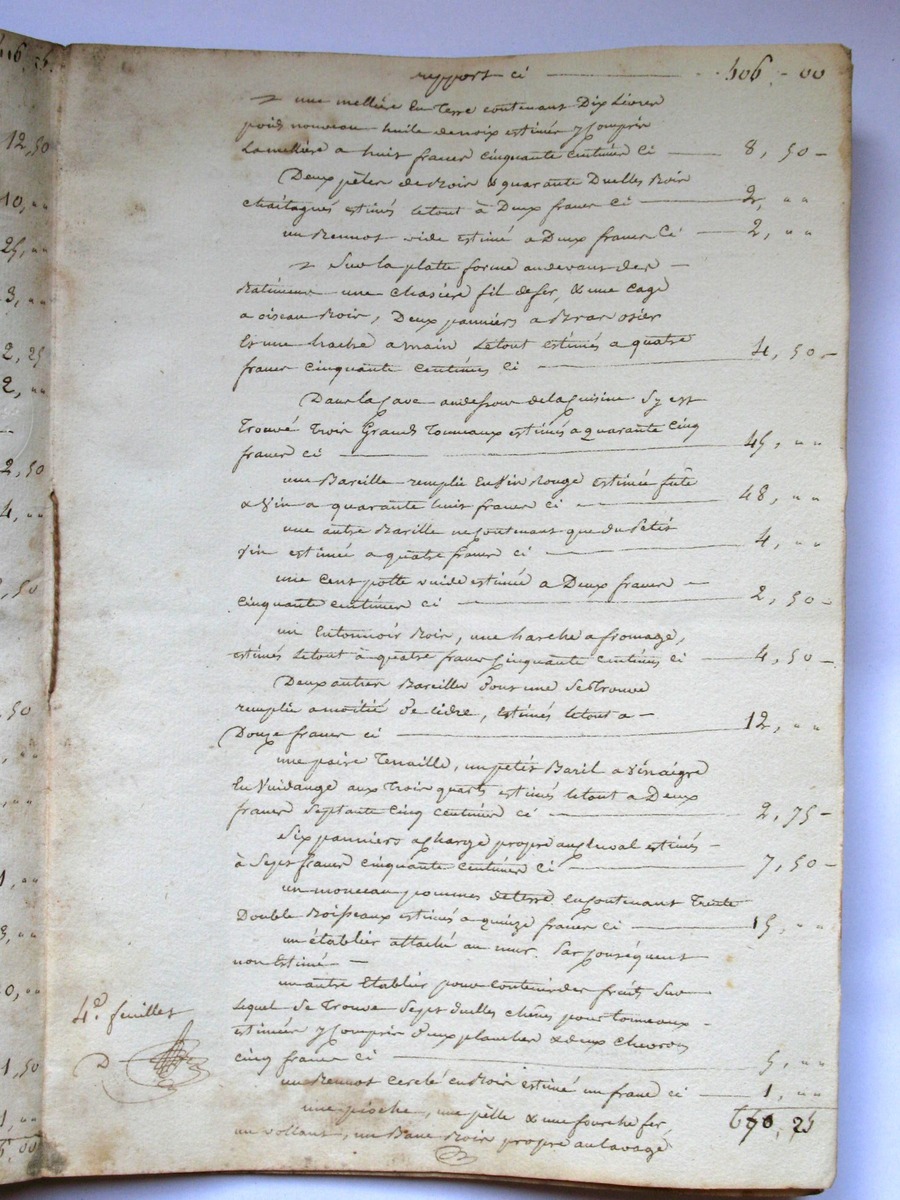 12,50
10, " "
25, " "
3, " "
2, 25
2, " "
2, 50
4, " "
50
1,50
rapport ci — 506 - 00
une mellière en terre contenant Dix Livres
poids nouveau huile de noix estimée y Compris
La mellière a huit francs cinquante centimes Ci — 8, 50 -
Deux pèles de Boir & quarante Duelles Boir
chaitagnés estimés le tout à Deux francs Ci — 2, " "
un Bennot vide estimé a Deux francs Ci — 2, " "
Sur la platte forme au devant des -
Batimens une chasière fil de fer, & une cage
a oiseau Boir, Deux panniers a Bras osier
Et une hache a main Le tout estimés a quatre
francs cinquante centimes Ci — 4, 50 -
Dans la Cave au dessous de la Cuisine S'y est
Trouvé Trois Grands Tonneaux estimés a quarante Cinq
francs ci — 45, " "
une Bareille remplie En Vin Rouge estimée fûte
& Vin a quarante huit francs ci — 48, " "
une autre Barille ne Contenant que du Petit
Vin estimée a quatre francs ci — 4, " "
une Cent potte vuide estimée a Deux francs -
Cinquante centimes ci — 2, 50 -
un Entonnoir Boir, une harche a fromage,
estimés Le tout à quatre francs Cinquante centimes ci — 4, 50 -
Deux autres Bareilles Dont une Se Trouve
remplie a moitié De cidre, estimés le tout a -
Douze francs ci — 12, " "
une paire Tenaille, un petit Baril a Vinaigre
En Vuidange aux Trois quarts estimés le tout a Deux
francs Septante Cinq centimes ci — 2, 75 -
Six panniers a charge propre au cheval estimés -
à Sept francs cinquante centimes Ci — 7, 50 -
un monceau pommes de terre En Contenant Trente
Double Boisseaux estimés a quinze francs ci — 15, " "
un établier attaché au mur Par Conséquent
non Estimé -
un autre Etablier pour Contenir des fruits Sur
Lequel Se Trouve Sept Duelles chênes pour tonneaux -
estimées y Compris Deux planches & deux Chevrons
Cinq francs Ci — 5, " "
un Bennot cerclé en Boir estimé un franc ci — 1, " "
une pioche, une pèlle & une fourche fer,
un vollant, un Banc Boir propre au lavage
670, 25
4e. feuillet